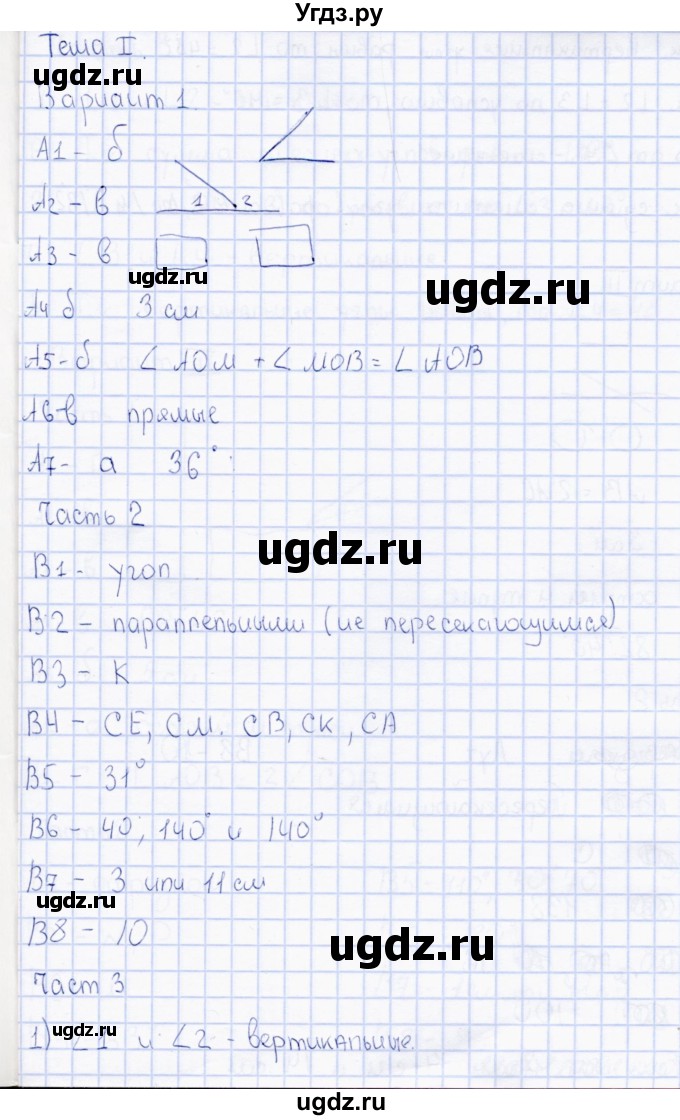 Угдз.ру
Тема I.
ugdz.ru
Вариант 1.
ugdz.ru
А1 - б
А2 - в 1 2
А3 - в
ugdz.ru
ugdz.ru
А4 б 3 см
А5 - б ∠ АОМ + ∠ МОВ = ∠ АОВ
А6-в прямые
А7- а 36°
Часть 2
ugdz.ru
В1 - угол
В2 - параллельными (не пересекающимися)
В3 - К
В4 - СЕ, СМ. СВ, СК, СА
В5 - 31°
В6 - 40°, 140° и 140°
В7 - 3 или 11 см
ugdz.ru
В8 - 10
ugdz.ru
Част 3
1) ∠1 и ∠2 - вертикальные.
ugdz.ru